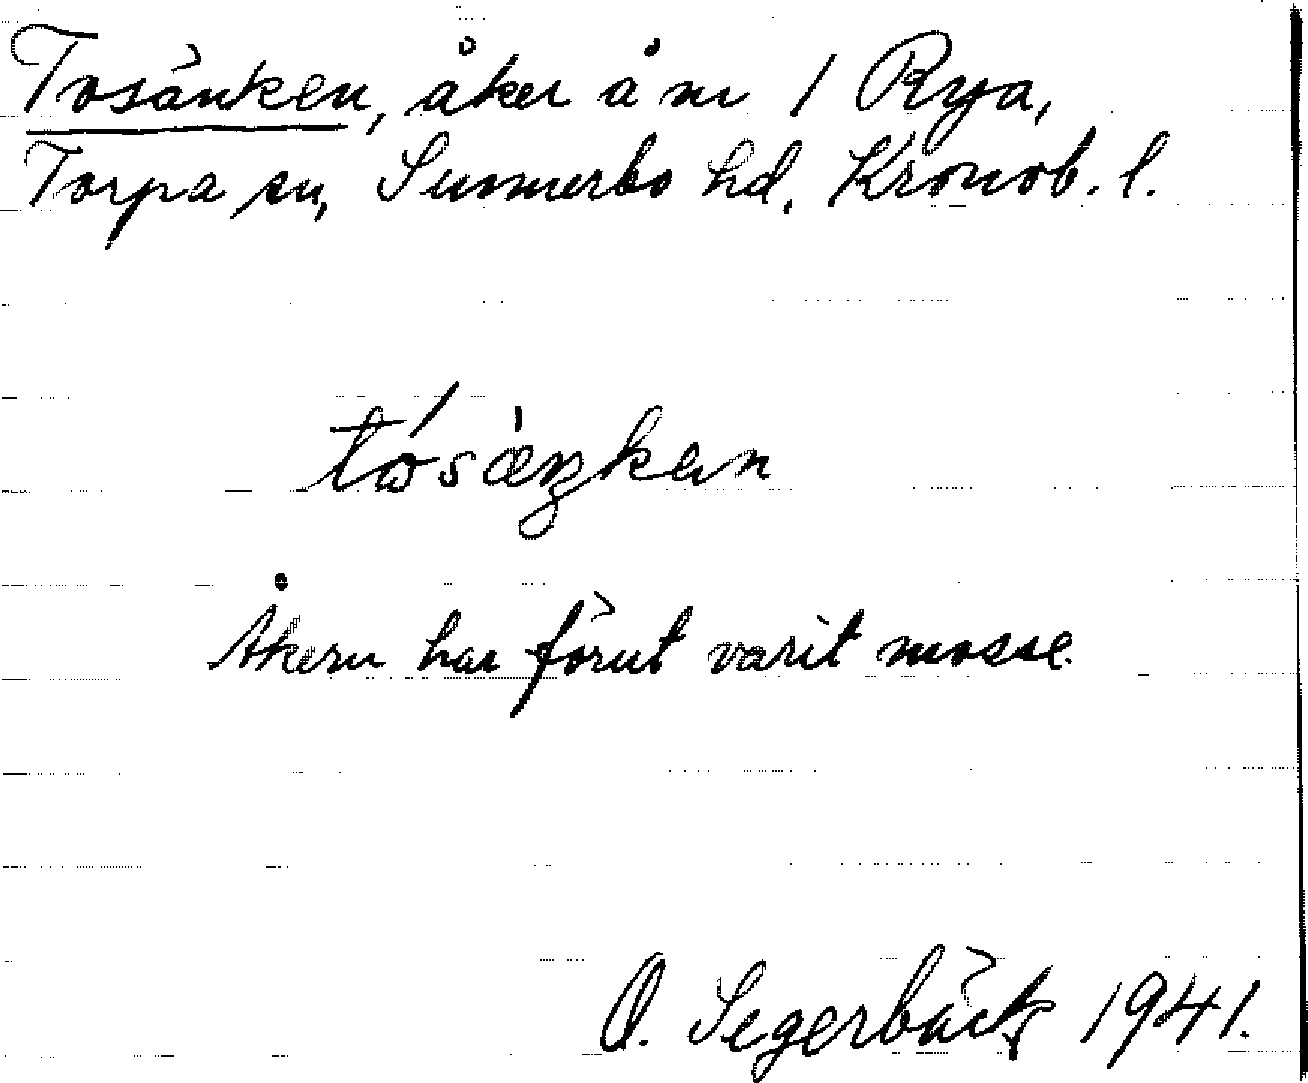 Tosänken, åker å nr 1 Rya,
Torpa sn, Sunnerbo hd, Kronob. l.
tósæ̀ŋkan
Åkern har förut varit mosse.
O. Segerbäck 1941.